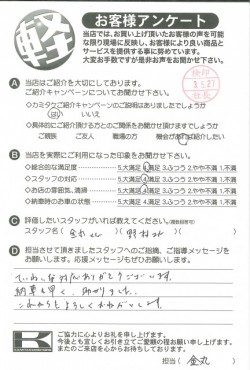 軽
お客様アンケート
当店では、お買い上げ頂いたお客様の声を可能
な限り現場に反映し、お客様により良い商品と
サービスを提供する事に努めています。
大変お手数ですが是非お声をお聞かせ下さい。
A 当店はご紹介を大切にしております。
ご紹介キャンペーンについてお聞かせ下さい。
◇カミタケご紹介キャンペーンのご説明はありましたでしょうか
はい いいえ
◇具体的にご紹介頂ける方とのご関係をお聞かせ頂けますでしょうか
ご親族 ご友人 職場の方 機会があれば紹介したい
B 当店を実際にご利用になった印象をお聞かせ下さい。
◇総合的な満足度 5.大満足 4.満足 3.ふつう 2.やや不満 1.不満
◇スタッフの対応 5.大満足 4.満足 3.ふつう 2.やや不満 1.不満
◇お店の雰囲気、清掃 5.大満足 4.満足 3.ふつう 2.やや不満 1.不満
◇納車時のお車の状態 5.大満足 4.満足 3.ふつう 2.やや不満 1.不満
C 評価したいスタッフがいれば教えてください。(複数回答可)
スタッフ名( 金丸 野村 )
D 担当させて頂きましたスタッフへのご指摘、ご指導メッセージを
お願いします。応援メッセージもぜひお願いします。
ていねいな対応ありがとうございます。
納車も早く、助かりました。
これからもよろしくおねがいします。
K
ご協力に心よりお礼を申し上げます。
今後とも宜しくお引き立てご愛顧の程お願い申し上げます。
またのご来店を心からお待ちしております。
担当( 金丸 )